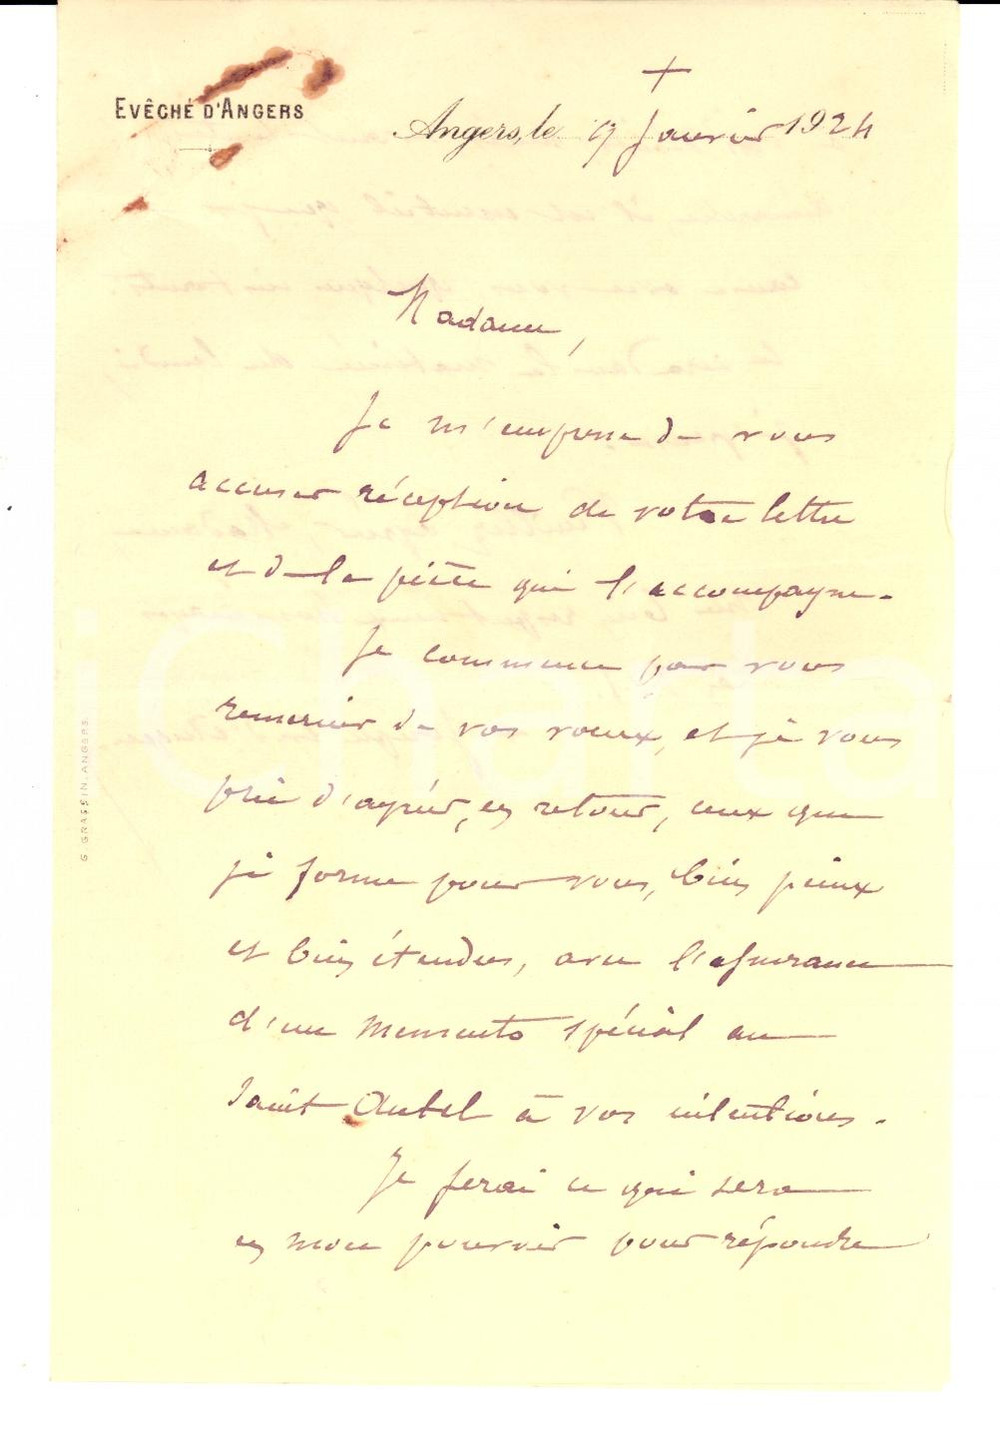 EVÊCHÉ D'ANGERS
+
Angers, le 9 Janvier 1924
Madame,
Je m'empresse de vous
accuser réception de votre lettre
et de la pièce qui l'accompagne.
Je commence par vous
remercier de vos voeux, et je vous
prie d'agréer, en retour, ceux que
je forme pour vous, bien pieux
et bien étendus, avec l'assurance
d'un Memento spécial au
Saint Autel à vos intentions.
Je ferai ce qui sera
en mon pouvoir pour répondre
G. GRASSIN. ANGERS.
iCharta